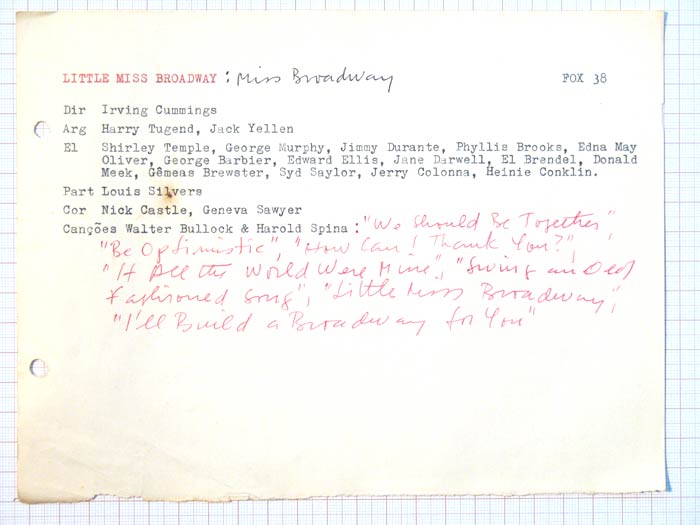 LITTLE MISS BROADWAY : Miss Broadway FOX 38
Dir Irving Cummings
Arg Harry Tugend, Jack Yellen
El Shirley Temple, George Murphy, Jimmy Durante, Phyllis Brooks, Edna May
Oliver, George Barbier, Edward Ellis, Jane Darwell, El Brendel, Donald
Meek, Gêmeas Brewster, Syd Saylor, Jerry Colonna, Heinie Conklin.
Part Louis Silvers
Cor Nick Castle, Geneva Sawyer
Canções Walter Bullock & Harold Spina : "We Should Be Together",
"Be Optimistic", "How Can I Thank You?",
"If All the World Were Mine", "Swing an Old
fashioned Song", "Little Miss Broadway",
"I'll Build a Broadway for You"